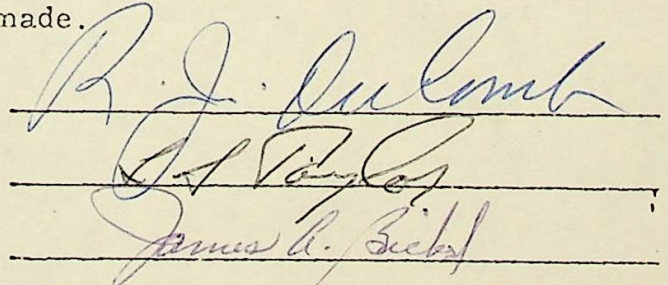 made.
R. J. DuComb
Taylor
James A. Bickel